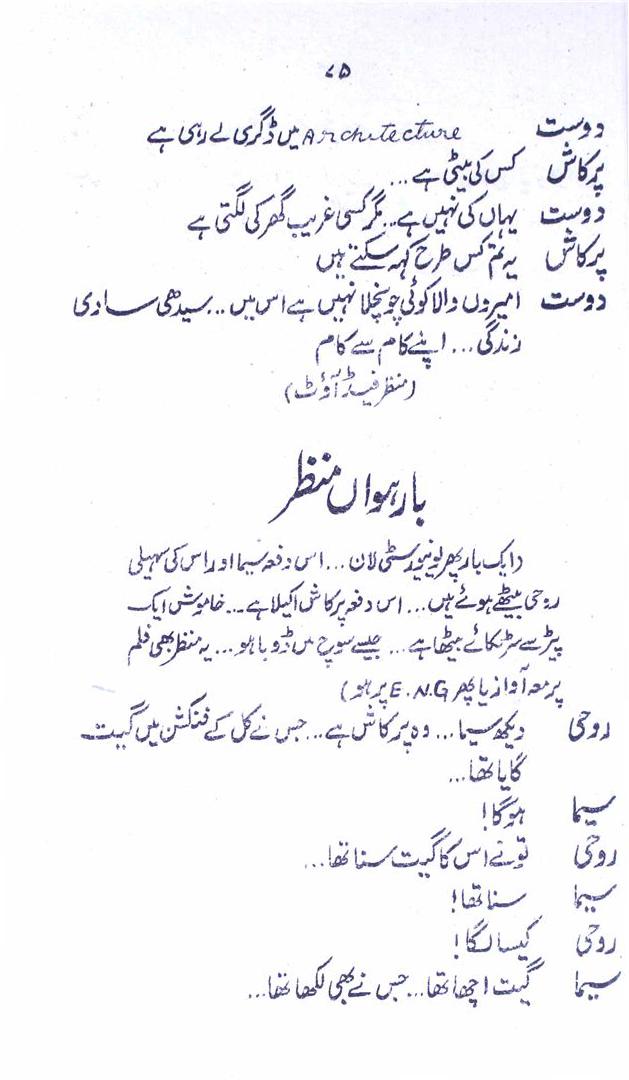 ۷۵
دوست Architecture میں ڈگری لے رہی ہے
پرکاش کس کی بیٹی ہے...
دوست یہاں کی نہیں ہے... مگر کسی غریب گھر کی لگتی ہے
پرکاش یہ تم کس طرح کہہ سکتے ہیں
دوست امیروں والا کوئی چونچلا نہیں ہے اس میں... سیدھی سادی
زندگی... اپنے کام سے کام
(منظر فیڈ آؤٹ)
بارہواں منظر
(ایک بار پھر یونیورسٹی لان... اس دفعہ سیما اور اس کی سہیلی
روحی بیٹھے ہوئے ہیں... اس دفعہ پرکاش اکیلا ہے... خاموش ایک
پیڑ سے سر ٹکائے بیٹھا ہے... جیسے سوچ میں ڈوبا ہو... یہ منظر بھی فلم
پر معہ آواز یا پھر E.N.G پر ہو)
روحی دیکھ سیما... وہ پرکاش ہے... جس نے کل کے فنکشن میں گیت
گایا تھا...
سیما ہوگا!
روحی تونے اس کا گیت سنا تھا...
سیما سنا تھا!
روحی کیسا لگا!
سیما گیت اچھا تھا... جس نے بھی لکھا تھا...